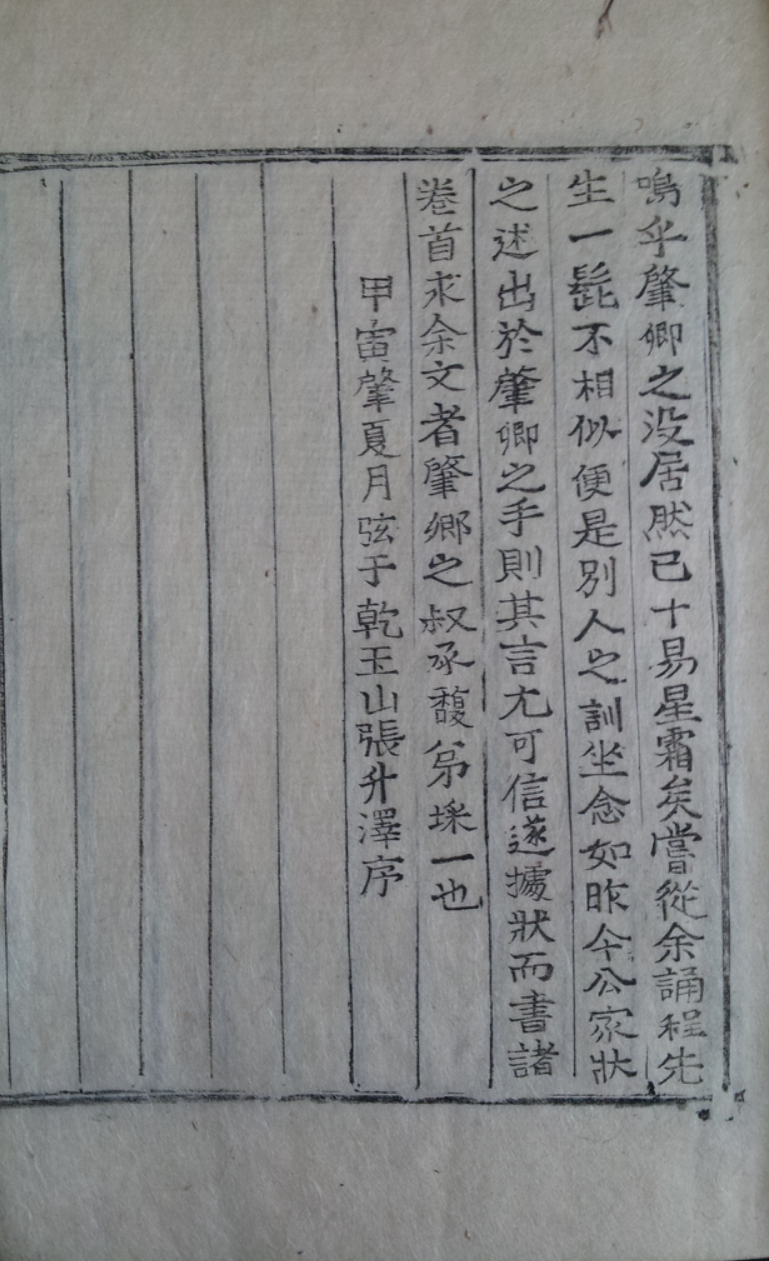 嗚乎肇卿之没居然已十易星霜矣嘗從余誦程先
生一髭不相似便是別人之訓坐念如昨今公家狀
之述出於肇卿之手則其言尤可信遂據狀而書諸
卷首求余文者肇鄉之叔承馥弟埰一也
甲寅肇夏月弦于乾玉山張升澤序